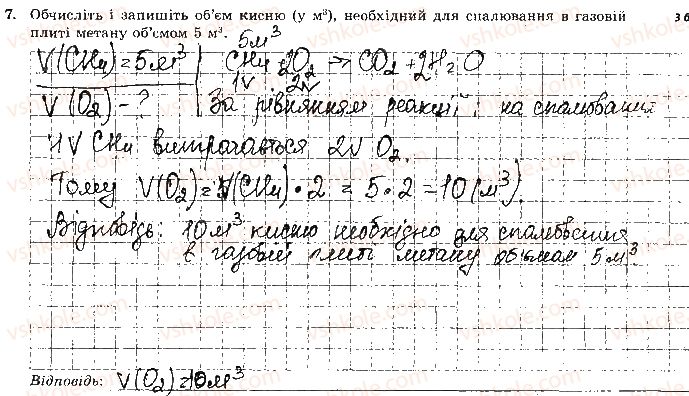 7. Обчисліть і запишіть об'єм кисню (у м³), необхідний для спалювання в газовій
плиті метану об'ємом 5 м³.
3б
5м³
V(CH₄)=5м³ | CH₄ 2O₂ → CO₂ + 2H₂O
1V 2V
V(O₂) - ? За рівнянням реакції і на спалювання
1V CH₄ витрачається 2V O₂.
Тому V(O₂) = V(CH₄) · 2 = 5 · 2 = 10 (м³).
Відповідь: 10м³ кисню необхідно для спалювання
в газовій плиті метану об'ємом 5м³
Відповідь: V(O₂)=10м³